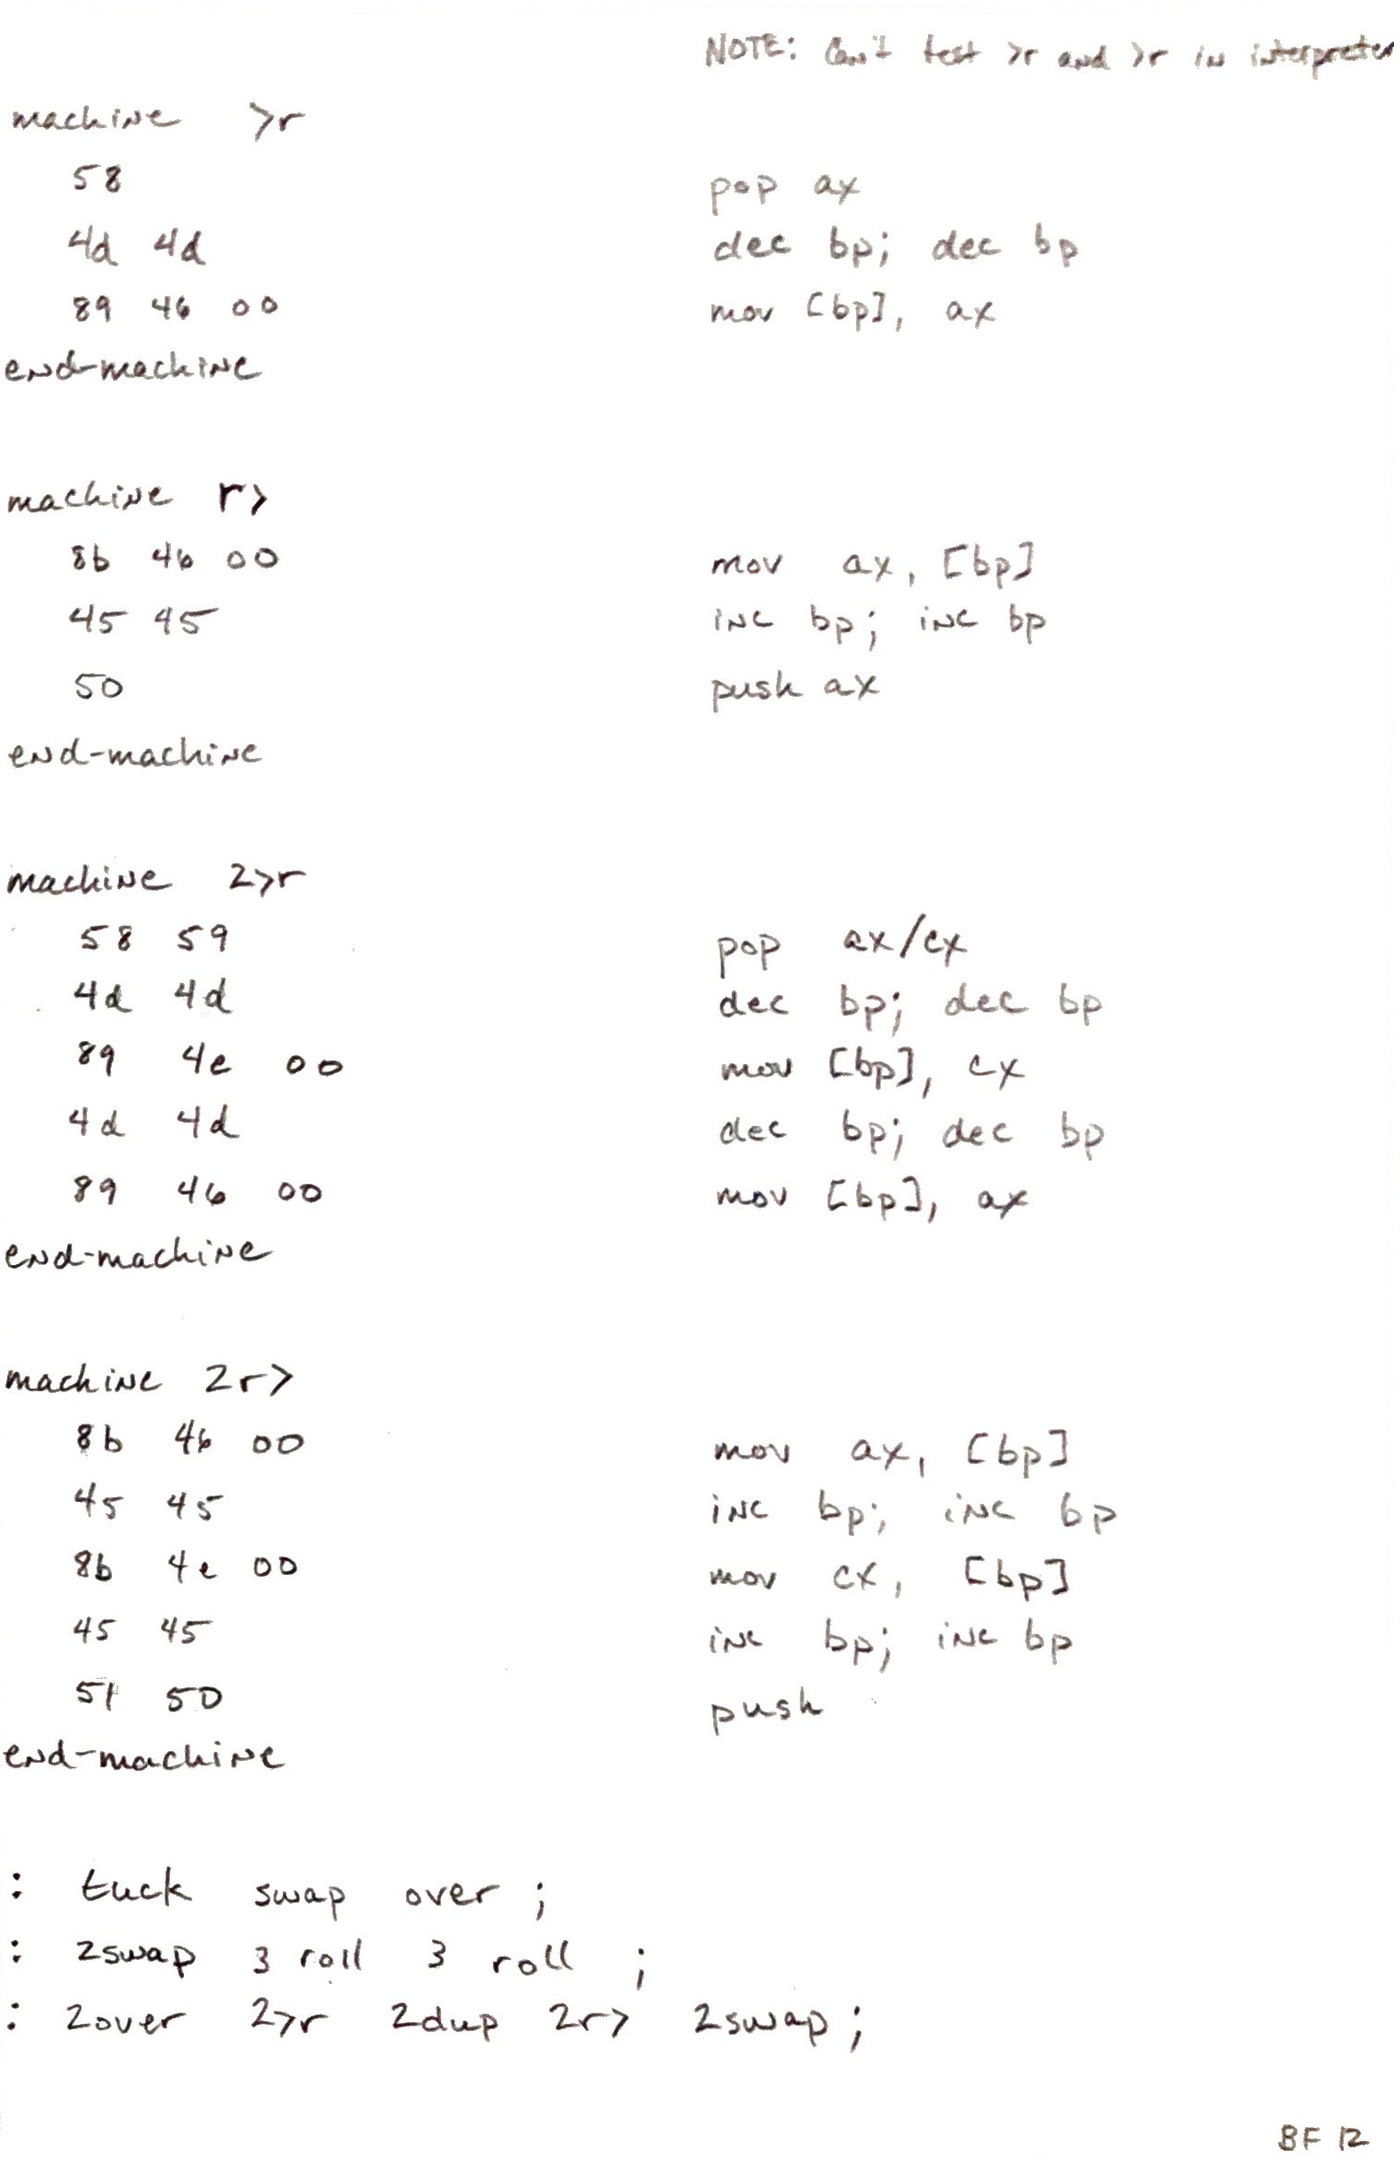 NOTE: Can't test >r and >r in interpreter
machine >r
58 pop ax
4d 4d dec bp; dec bp
89 46 00 mov [bp], ax
end-machine
machine r>
8b 46 00 mov ax, [bp]
45 45 inc bp; inc bp
50 push ax
end-machine
machine 2>r
58 59 pop ax/cx
4d 4d dec bp; dec bp
89 4e 00 mov [bp], cx
4d 4d dec bp; dec bp
89 46 00 mov [bp], ax
end-machine
machine 2r>
8b 46 00 mov ax, [bp]
45 45 inc bp; inc bp
8b 4e 00 mov cx, [bp]
45 45 inc bp; inc bp
51 50 push
end-machine
: tuck swap over ;
: 2swap 3 roll 3 roll ;
: 2over 2>r 2dup 2r> 2swap ;
BF 12